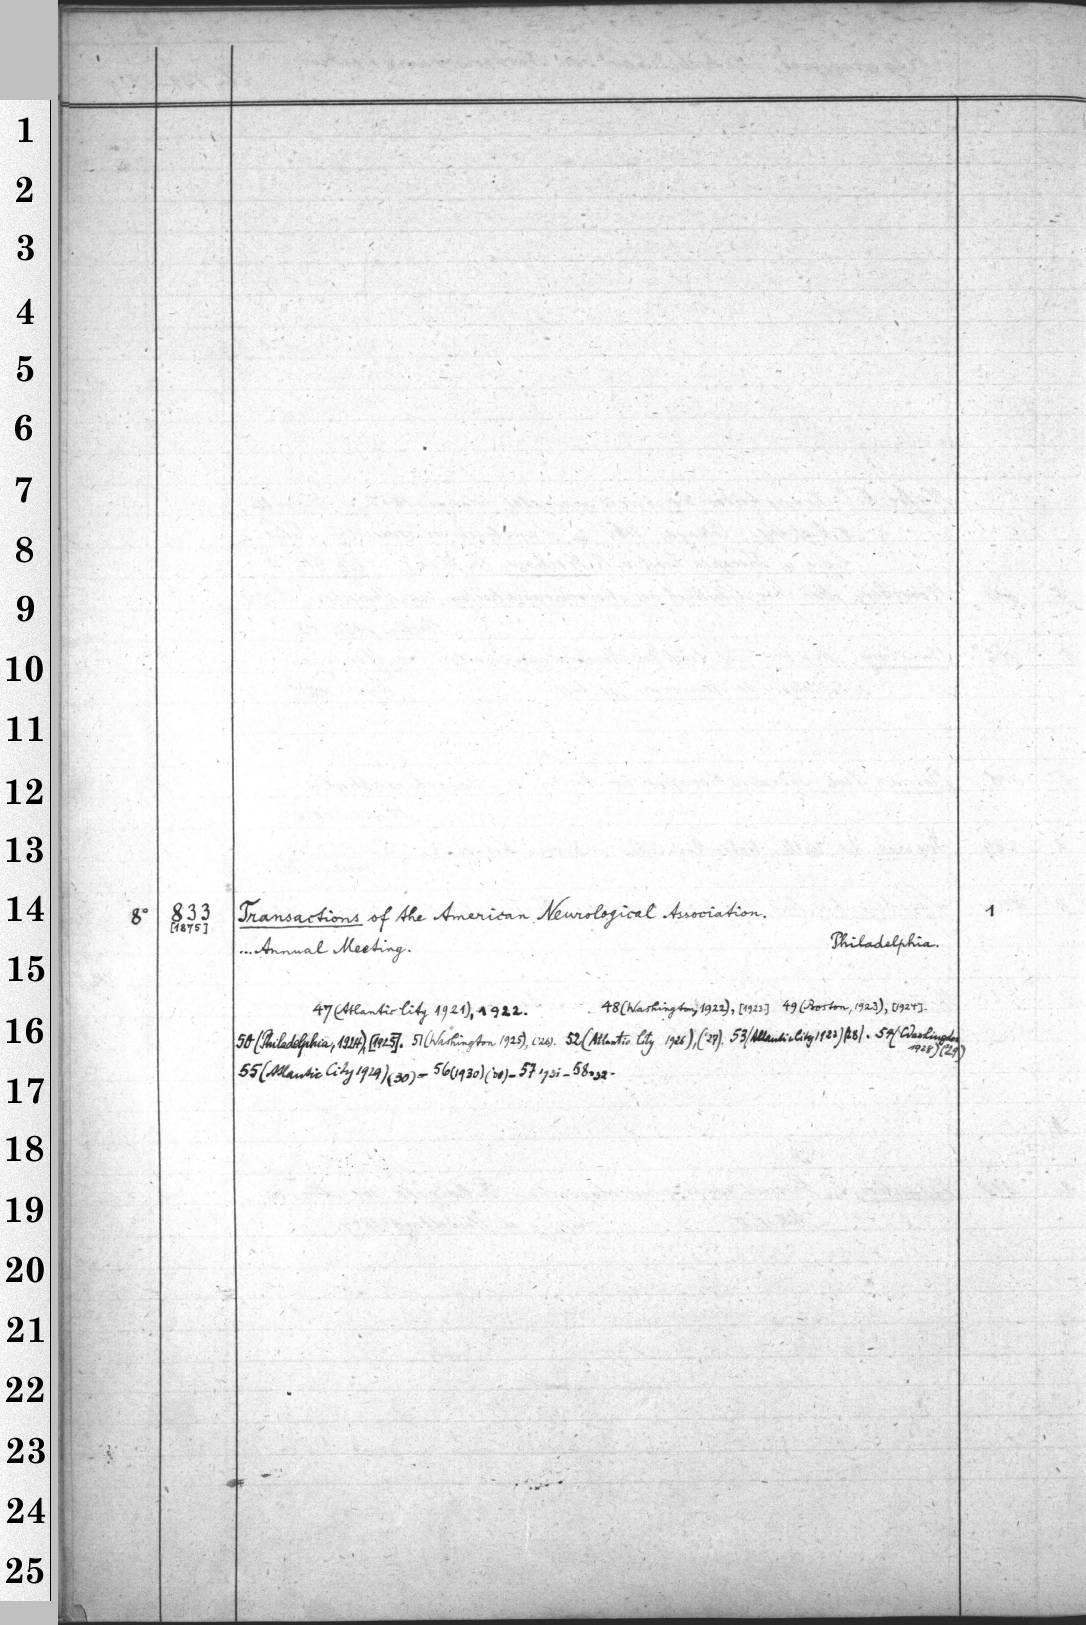 1
2
3
4
5
6
7
8
9
10
11
12
13
14
8° 833 Transactions of the American Neurological Association. 1
[1875]
...Annual Meeting. Philadelphia.
15
47 (Atlantic City 1921), 1922. 48 (Washington, 1922), [1923] 49 (Boston, 1923), [1924].
16
50 (Philadelphia, 1924), [1925]. 51 (Washington 1925), ('26). 52 (Atlantic City 1926), ('27). 53 (Atlantic City 1927) (28). 54 (Washington
1928) (29)
55 (Atlantic City 1929) (30) – 56 (1930) ('30) – 57 1931 – 58 1932 –
17
18
19
20
21
22
23
24
25